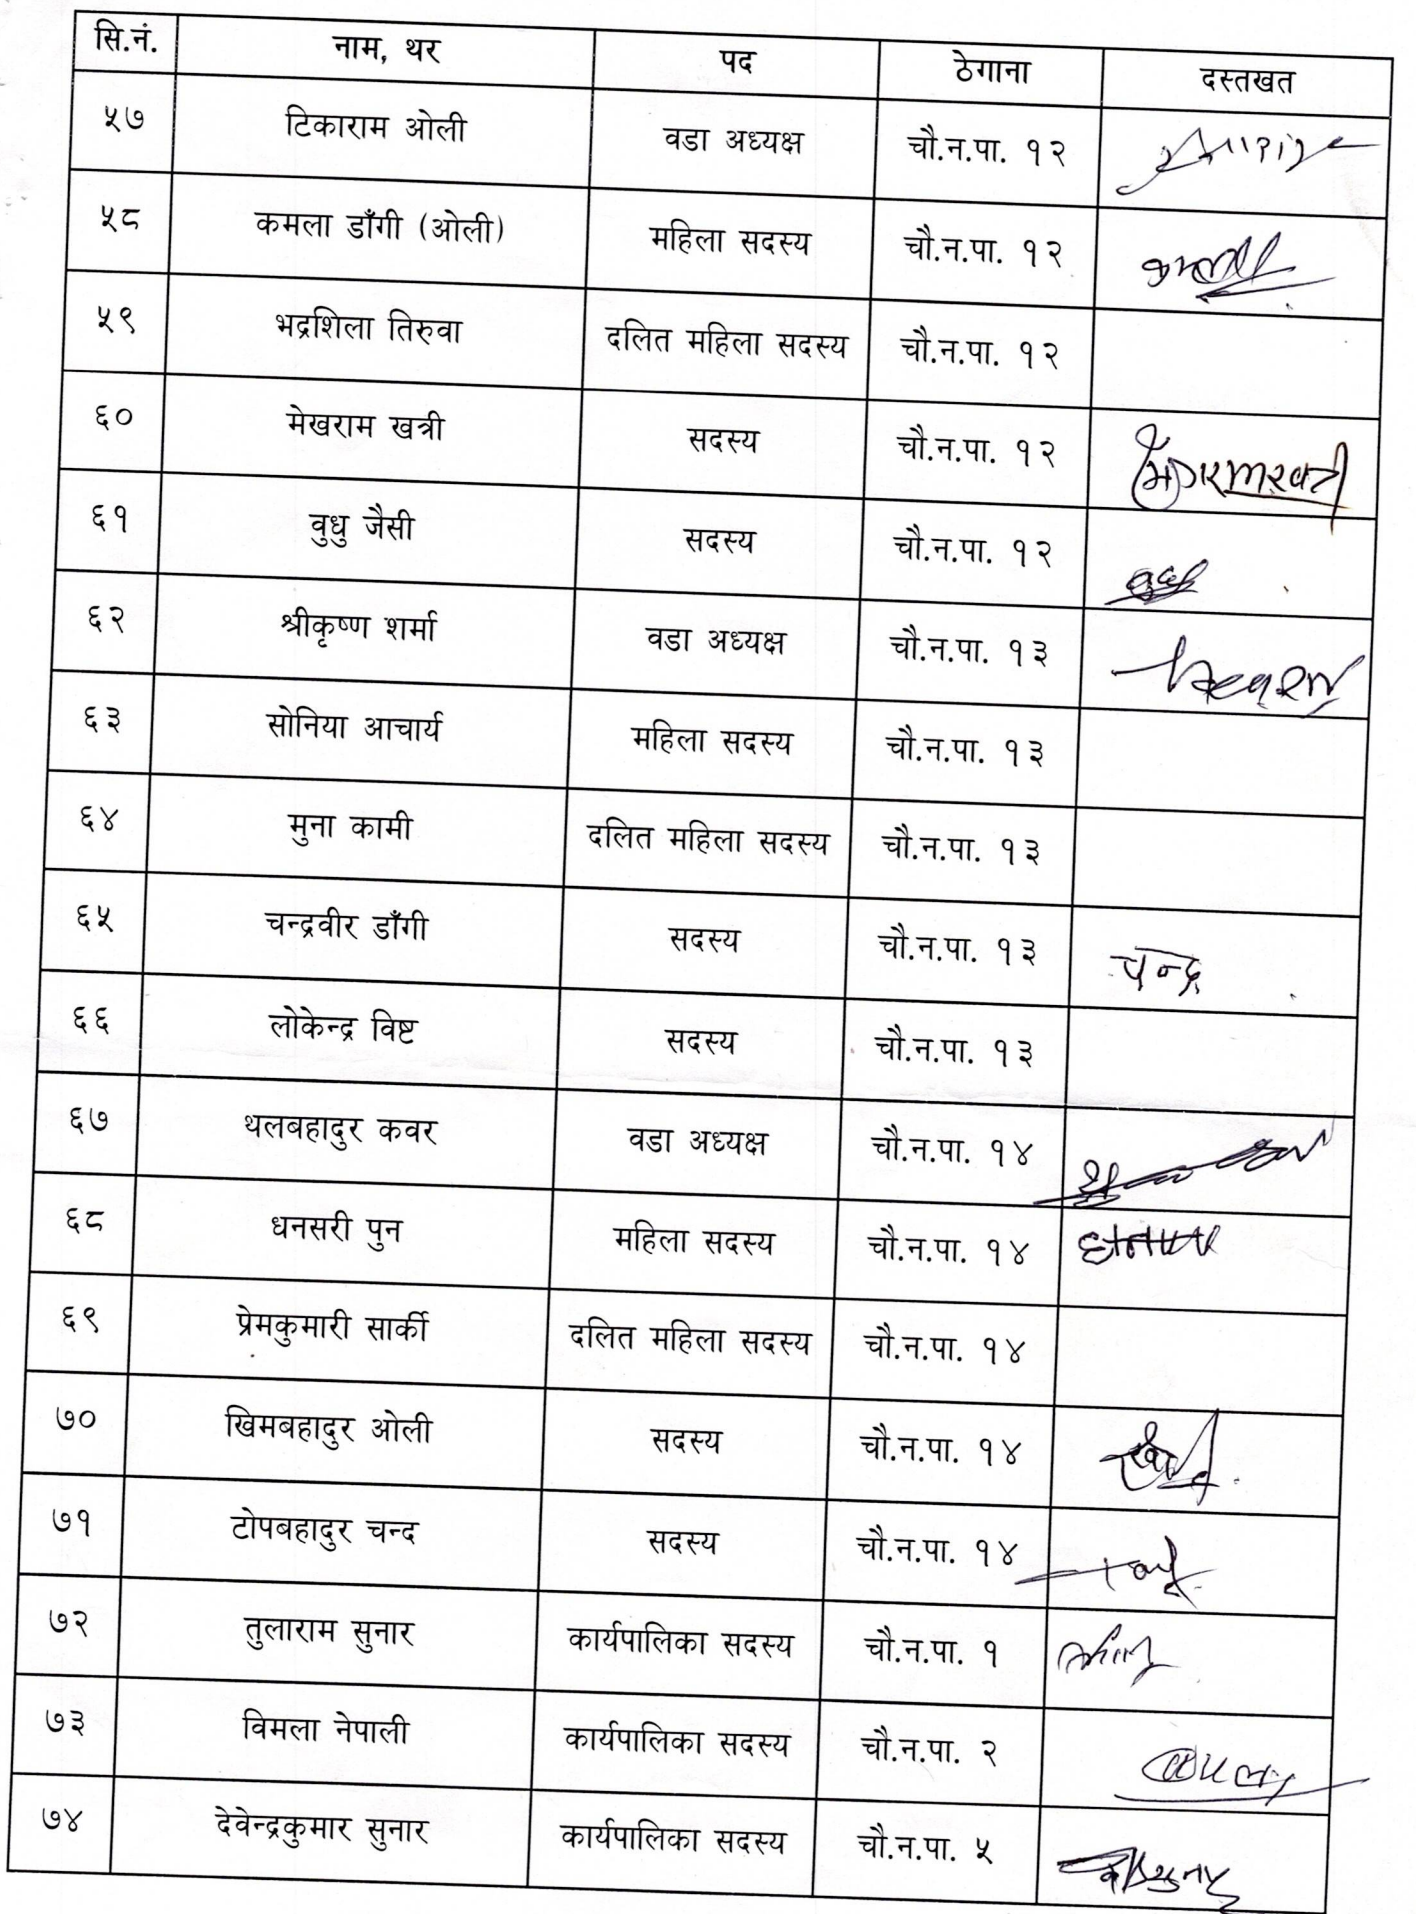 सि.नं. नाम, थर पद ठेगाना दस्तखत
५७ टिकाराम ओली वडा अध्यक्ष चौ.न.पा. १२
५८ कमला डाँगी (ओली) महिला सदस्य चौ.न.पा. १२
५९ भद्रशिला तिरुवा दलित महिला सदस्य चौ.न.पा. १२
६० मेखराम खत्री सदस्य चौ.न.पा. १२
६१ वुधु जैसी सदस्य चौ.न.पा. १२
६२ श्रीकृष्ण शर्मा वडा अध्यक्ष चौ.न.पा. १३
६३ सोनिया आचार्य महिला सदस्य चौ.न.पा. १३
६४ मुना कामी दलित महिला सदस्य चौ.न.पा. १३
६५ चन्द्रवीर डाँगी सदस्य चौ.न.पा. १३ चन्द्र
६६ लोकेन्द्र विष्ट सदस्य चौ.न.पा. १३
६७ थलबहादुर कवर वडा अध्यक्ष चौ.न.पा. १४
६८ धनसरी पुन महिला सदस्य चौ.न.पा. १४
६९ प्रेमकुमारी सार्की दलित महिला सदस्य चौ.न.पा. १४
७० खिमबहादुर ओली सदस्य चौ.न.पा. १४
७१ टोपबहादुर चन्द सदस्य चौ.न.पा. १४
७२ तुलाराम सुनार कार्यपालिका सदस्य चौ.न.पा. १
७३ विमला नेपाली कार्यपालिका सदस्य चौ.न.पा. २
७४ देवेन्द्रकुमार सुनार कार्यपालिका सदस्य चौ.न.पा. ५